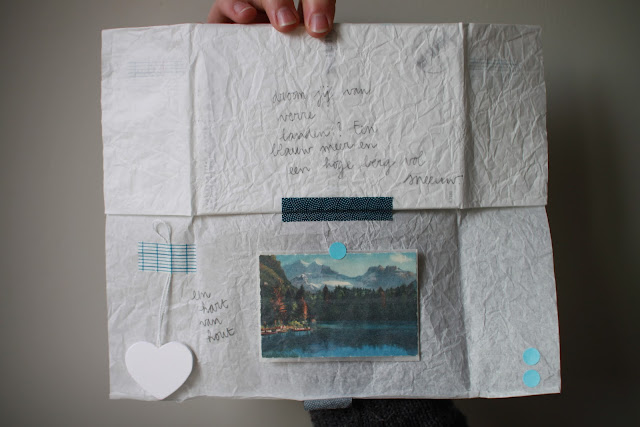 droom jij van
verre
landen? Een
blauw meer en
een hoge berg vol
sneeuw
een
hart
van
hout